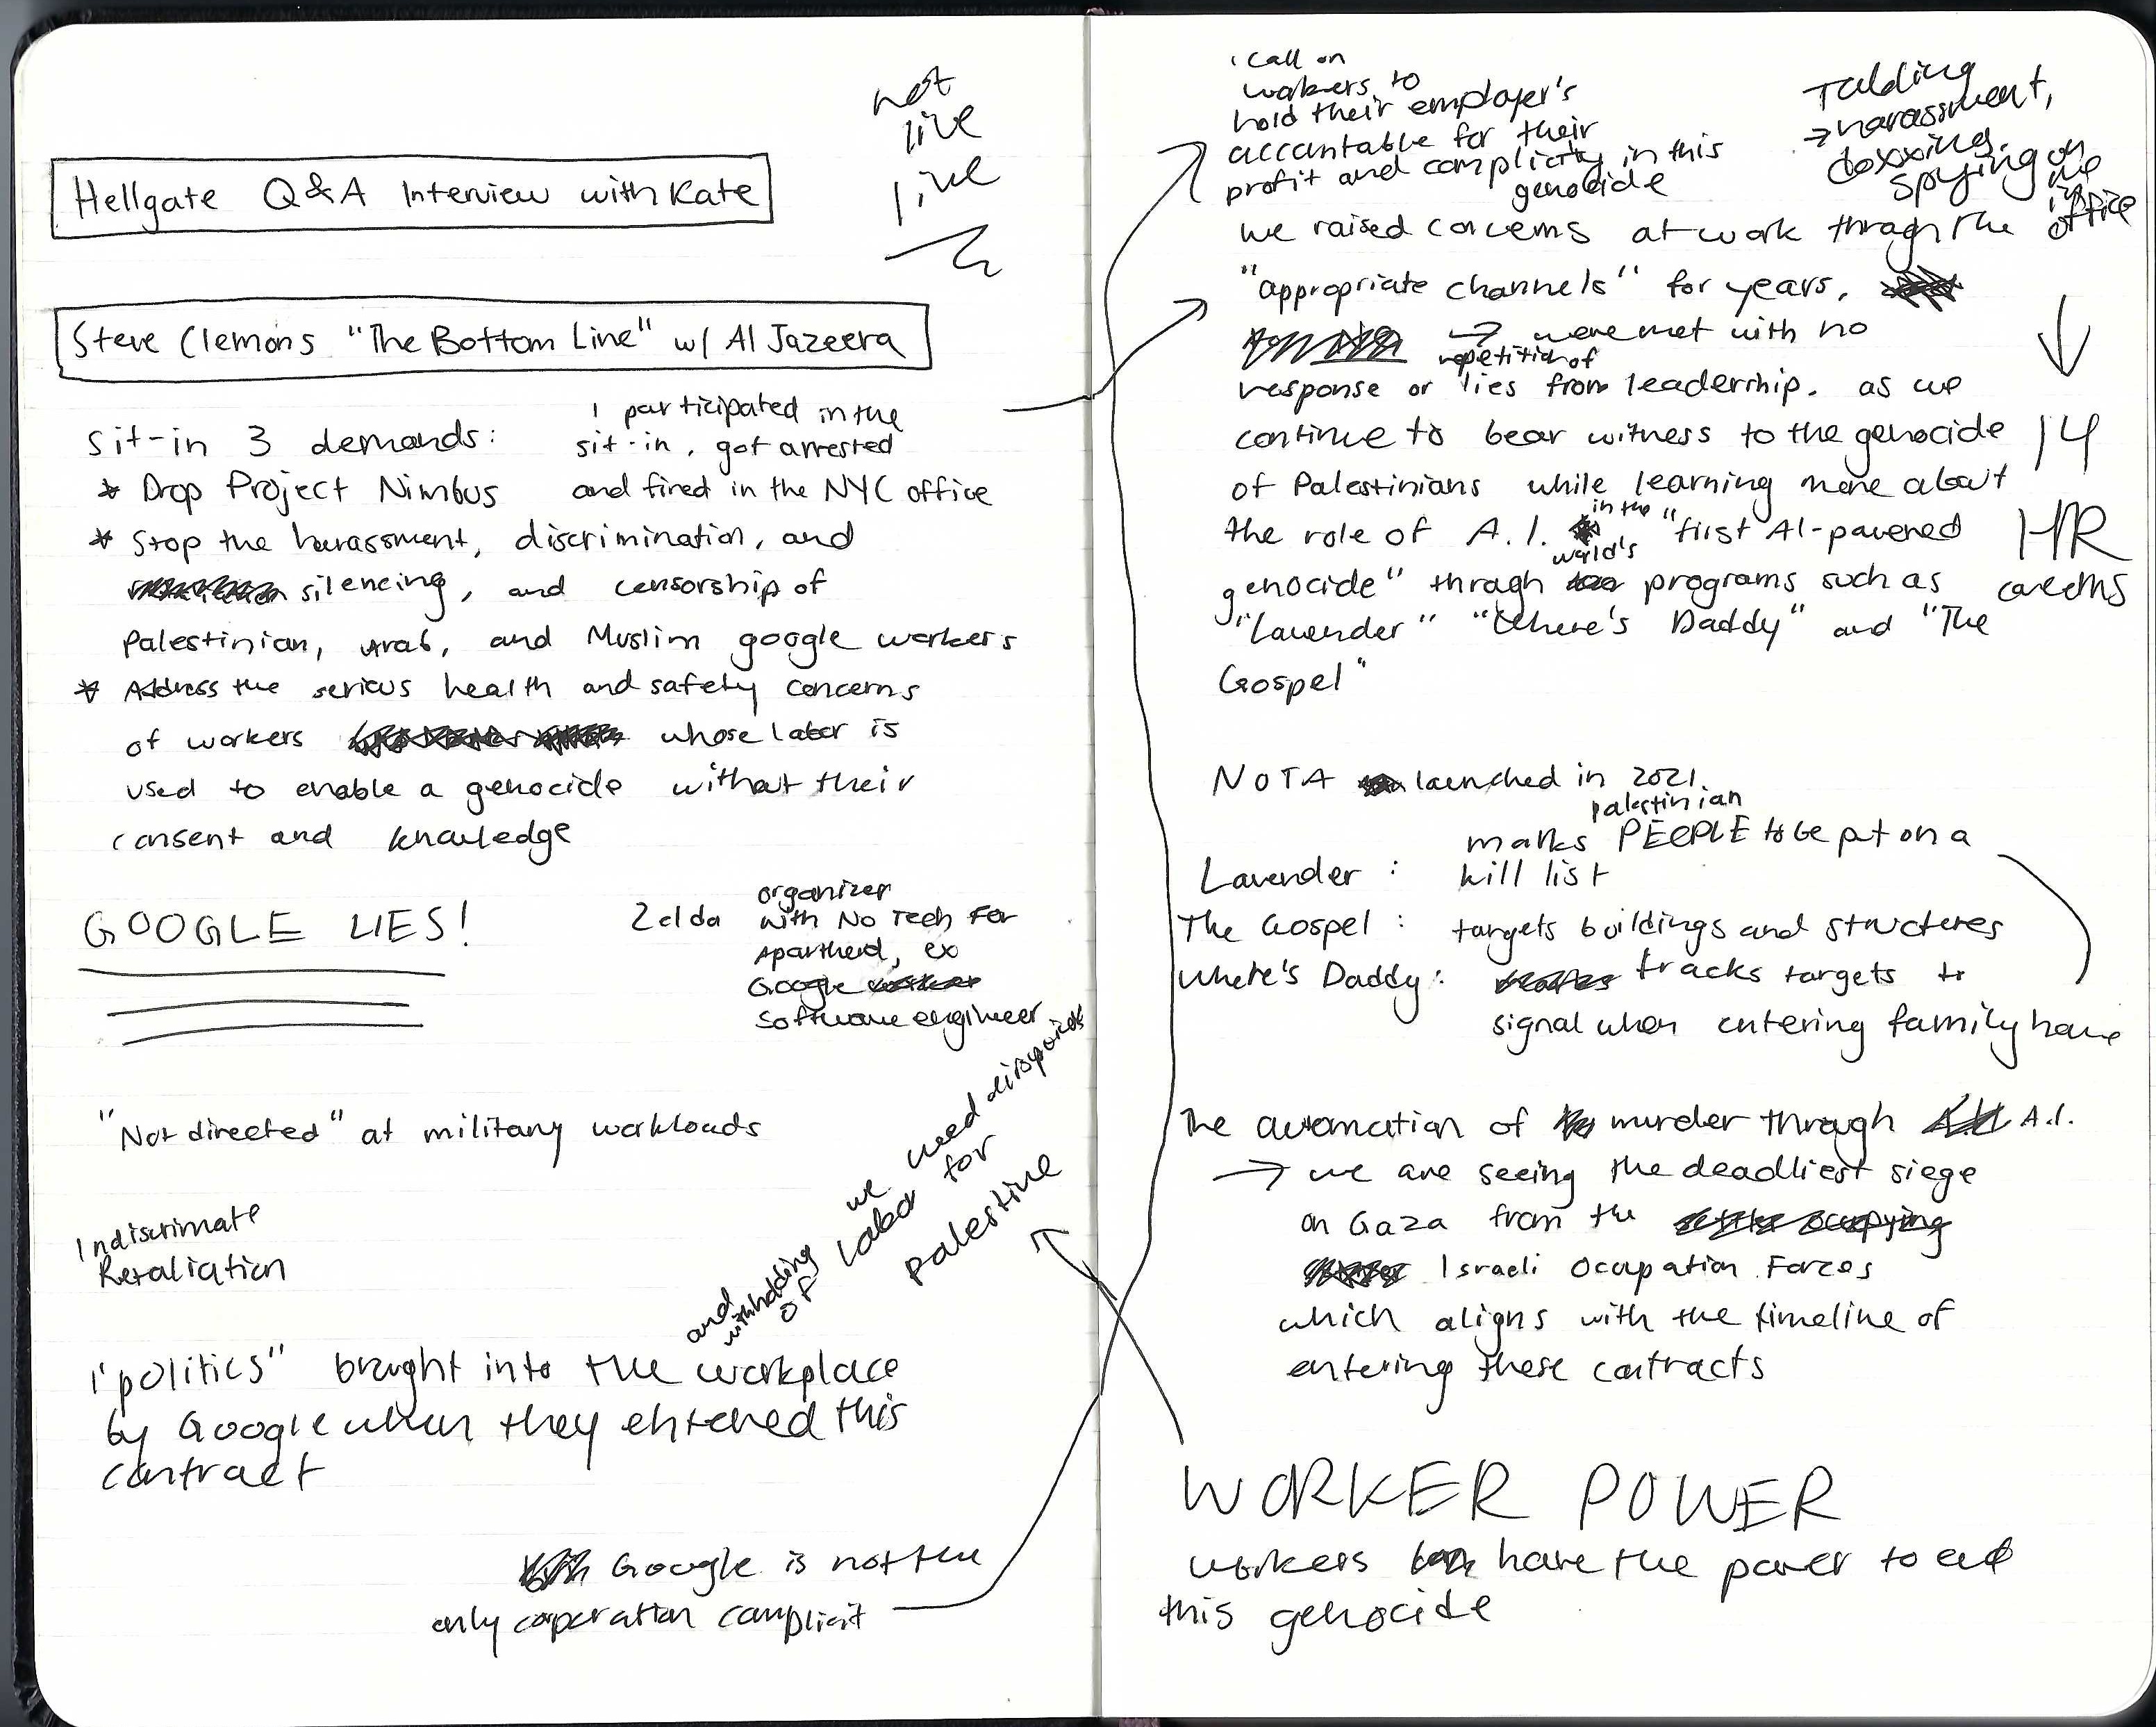 not
live
live
Hellgate Q&A Interview with Kate
Steve Clemons "The Bottom Line" w/ Al Jazeera
I participated in the
sit-in, got arrested
and fired in the NYC office
Sit-in 3 demands:
* Drop Project Nimbus
* Stop the harassment, discrimination, and
silencing, and censorship of
Palestinian, Arab, and Muslim google workers
* Address the serious health and safety concerns
of workers whose labor is
used to enable a genocide without their
consent and knowledge
GOOGLE LIES!
Zelda
organizer
with No Tech For
Apartheid, ex
Google worker
software engineer
"Not directed" at military workloads
Indiscrimate
Retaliation
and
withholding
of
we need
labor for
Palestine
"politics" brought into the workplace
by Google when they entered this
contract
Google is not the
only corporation complicit
I call on
workers to
hold their employer's
accountable for their
profit and complicity in this
genocide
Talding
→ harassment,
doxxing,
spying on
me
in
office
we raised concerns at work through the
"appropriate channels" for years,
→ were met with no
repetition of
response or lies from leadership. as we
continue to bear witness to the genocide
of Palestinians while learning more about
in the
the role of A.I. "first AI-powered
world's
genocide" through programs such as
"Lavender" "Where's Daddy" and "The
Gospel"
14
HR
NOTA launched in 2021.
palestinian
marks PEOPLE to be put on a
Lavender: kill list
The Gospel: targets buildings and structures
Where's Daddy: tracks targets to
signal when entering family home
The automation of murder through A.I.
→ we are seeing the deadliest siege
on Gaza from the occupying
Israeli Occupation Forces
which aligns with the timeline of
entering these contracts
WORKER POWER
workers have the power to end
this genocide